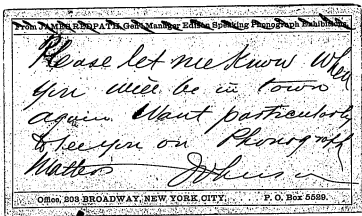 From JAMES REDPATH, Gen'l Manager Edison Speaking Phonograph Exhibitions.
Please let me know when
you will be in town
again. Want particularly
to see you on Phonograph
Matters Johnson
Office, 203 BROADWAY, NEW YORK CITY. P. O. Box 5529.